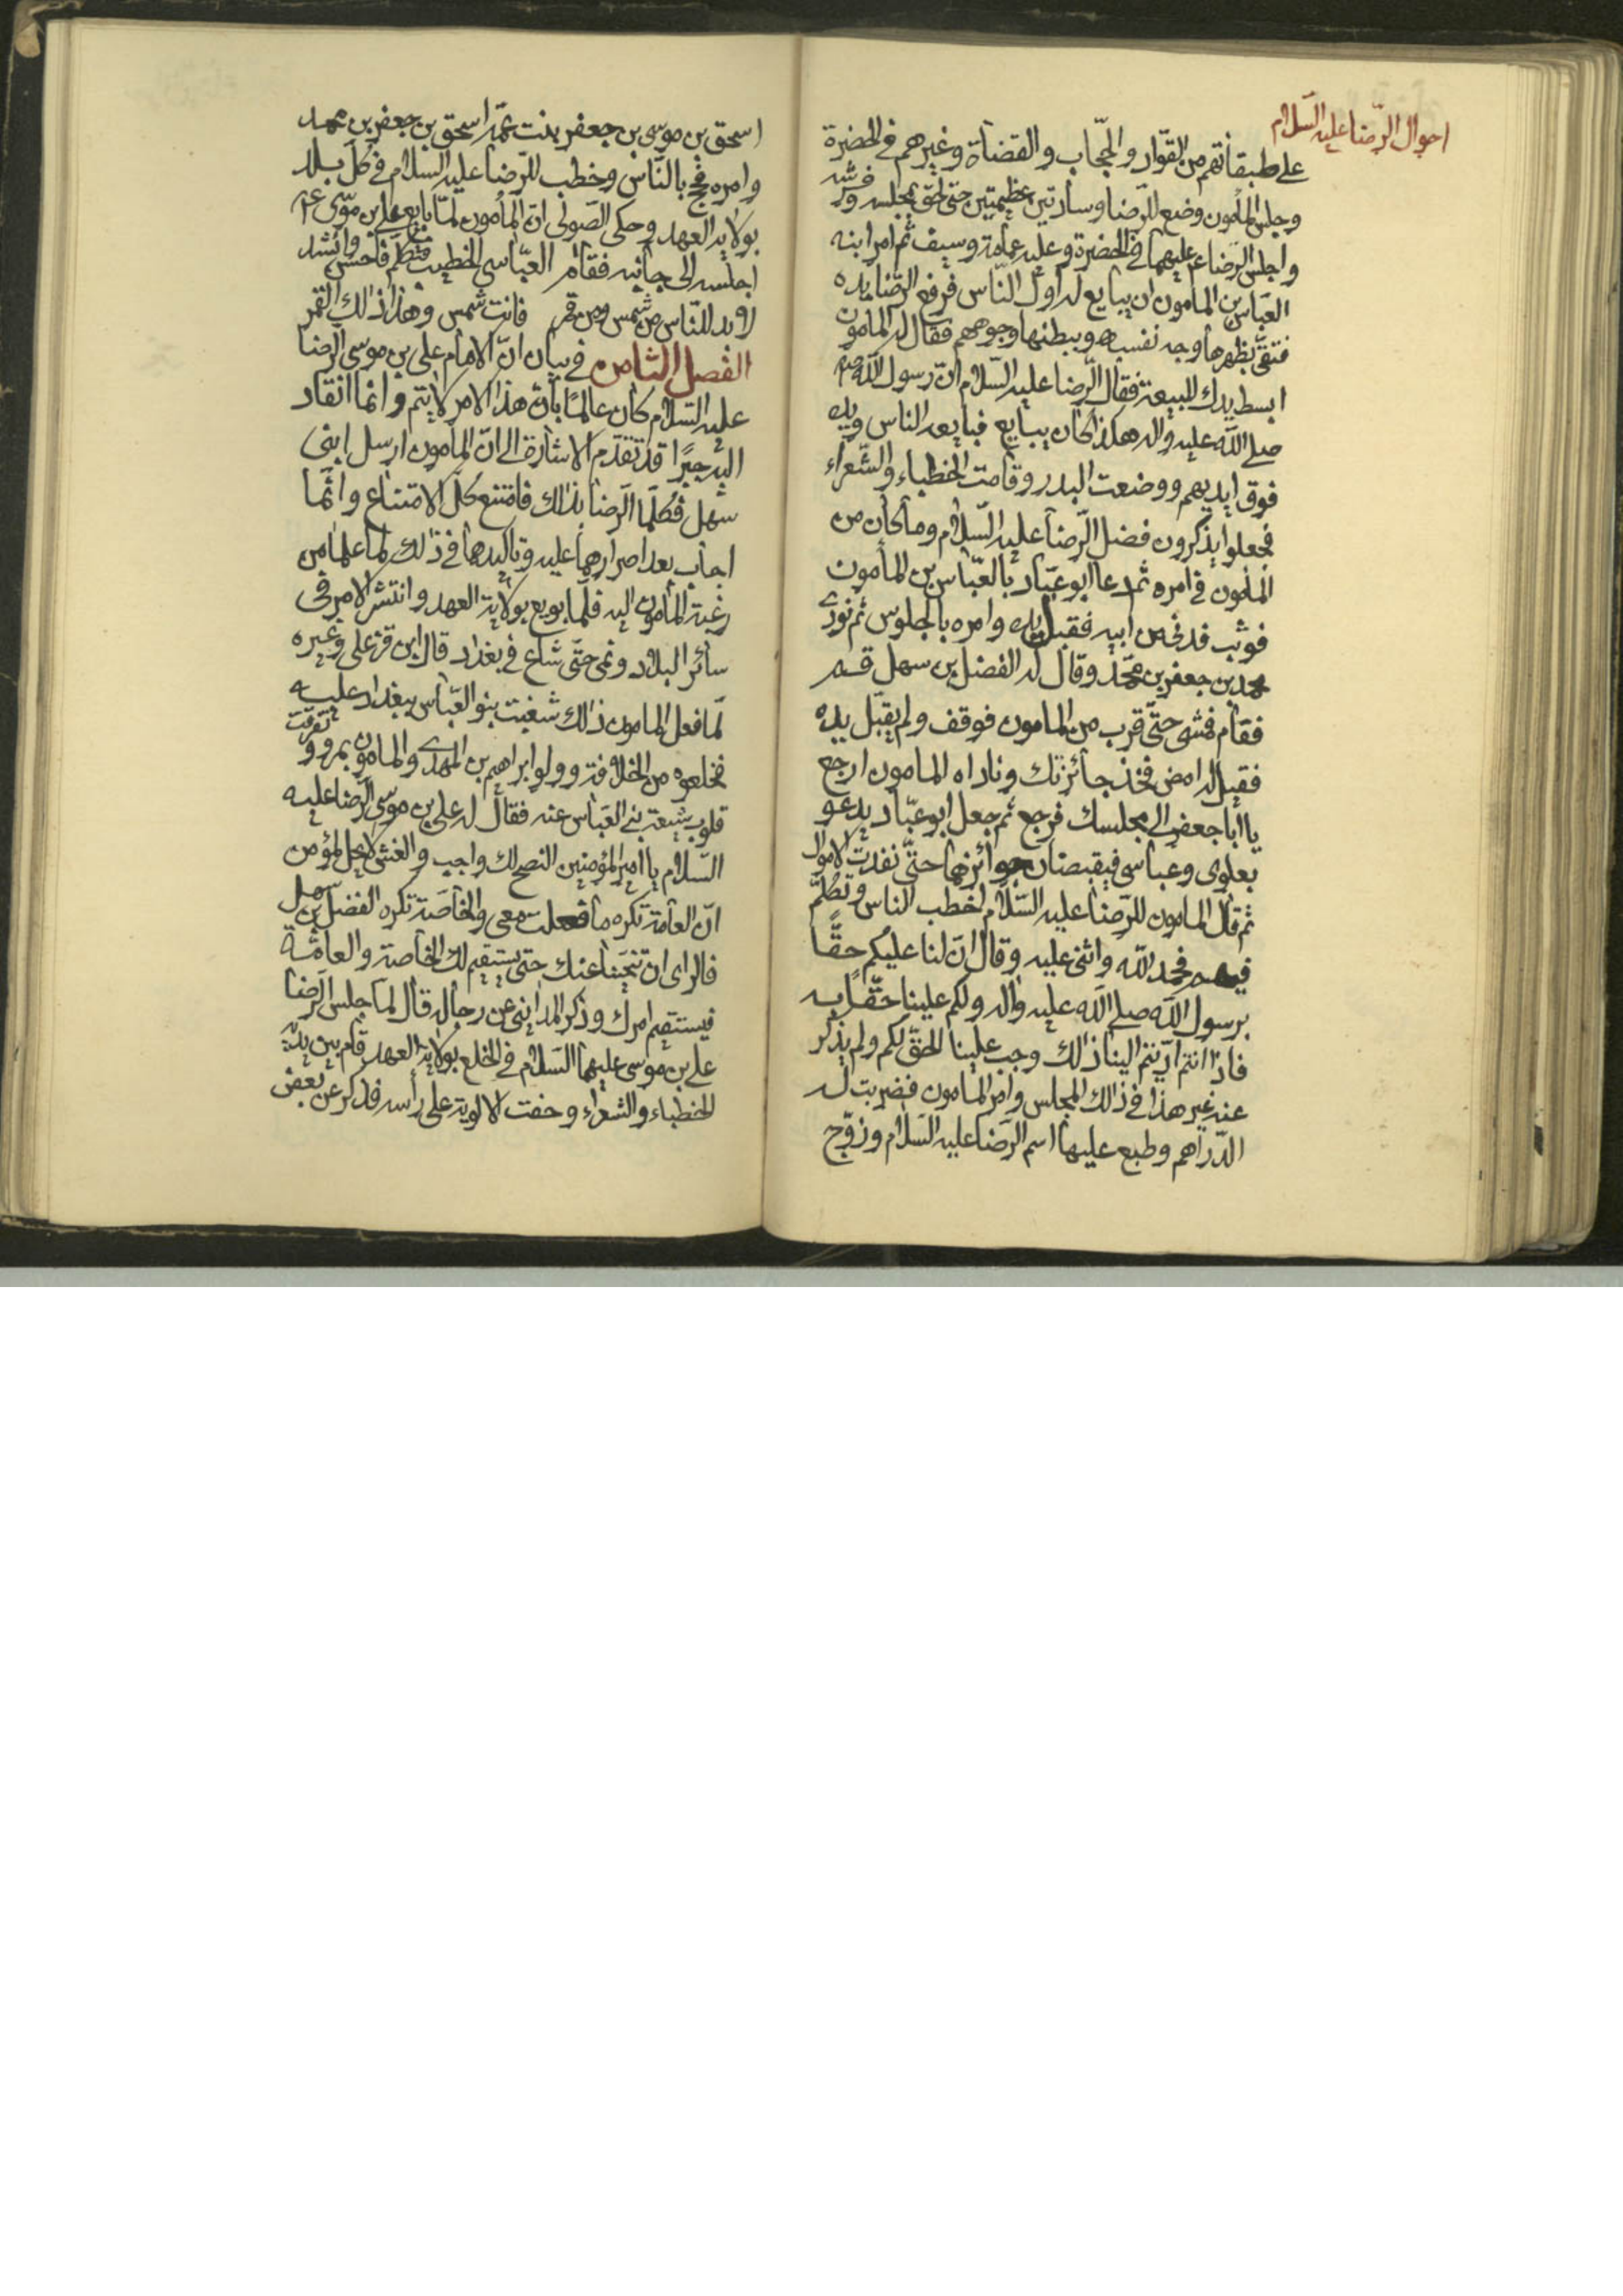 احوال الرّضا عليه السّلام
على طبقاتهم من القوّاد والحجّاب والقضاة وغيرهم في الخضرة
وجلس المأمون وضع للرّضا وسادتين عظيمتين حتى لحق بمجلسه وفرشه
واجلس الرضا ع عليهما في الخضرة وعليه عمامة وسيف ثم امر ابنه
العبّاس بن المامون ان يبايع له اول النّاس فرفع الرّضا يده
فتلقّى بظهرها وجه نفسه وببطنها وجوههم فقال له المامون
ابسط يدك للبيعة فقال الرّضا عليه السّلام ان رسول اللّه
صلى اللّه عليه واله هكذا كان يبايع فبايعه الناس ويده
فوق ايديهم ووضعت البدر وقامت الخطباء والشّعراء
فجعلوا يذكرون فضل الرّضا عليه السّلام وما كان من
المامون في امره ثم دعا ابو عبّاد بالعبّاس بن المامون
فوثب فدنى من ابيه فقبل يده وامره بالجلوس ثم نودى
محمد بن جعفر بن محمّد وقال له الفضل بن سهل قم
فقام فمشى حتّى قرب من المامون فوقف ولم يقبّل يده
فقيل له امض فخذ جائزتك وناداه المامون ارجع
يا ابا جعفر الى مجلسك فرجع ثم جعل ابو عبّاد يدعو
بعلوى وعباسى فيقبضان جوائزهما حتّى نفدت الاموال
ثم قال المامون للرّضا عليه السّلام اخطب الناس وتكلّم
فيهم فحمد اللّه واثنى عليه وقال انّ لنا عليكم حقًّا
برسول اللّه صلى اللّه عليه واله ولكم علينا حقّا به
فاذا انتم ادّيتم الينا ذلك وجب علينا الحقّ لكم ولم يذكر
عنه غير هذا في ذلك المجلس وامر المامون فضربت له
الدّراهم وطبع عليها اسم الرّضا عليه السّلام وزوّج
اسحق بن موسى بن جعفر بنت عمّه اسحق بن جعفر بن محمد
وامره فحج بالنّاس وخطب للرّضا عليه السلام في كل بلد
بولاية العهد وحكى الصّولى ان المأمون لمّا بايع على بن موسى ع
اجلسه الى جانبه فقام العبّاسى الخطيب فتكلّم فاحسن وانشد
لا بد للنّاس من شمس ومن قمر فانت شمس وهذا ذلك القمر
الفصل الثامن في بيان انّ الامام على بن موسى الرضا
عليه السّلام كان عالمًا بان هذا الامر لا يتم وانما انقاد
اليه جبرًا قد تقدّم الاشارة الى انّ المأمون ارسل ابنى
سهل فكلّما الرّضا بذلك فامتنع كلّ الامتناع وانّما
اجاب بعد اصرارهما عليه وتاكيدهما في ذلك لما علما من
رغبة المأمون اليه فلمّا بويع بولاية العهد وانتشر الامر في
سائر البلاد ونمى حتّى شاع في بغداد قال ابن قزعلى وغيره
لمّا فعل المامون ذلك شغبت بنو العبّاس ببغداد عليه
فخلعوه من الخلافة وولوا ابراهيم بن المهدى والمامون بمرو وتفرقت
قلوب شيعة بنى العبّاس عنه فقال له على بن موسى الرّضا عليه
السّلام يا امير المؤمنين النصح لك واجب والغش لا يحل لمؤمن
انّ العامة تكره ما فعلت معى والخاصّة تكره الفضل بن سهل
فالراى ان تنحينا عنك حتى يستقيم لك الخاصة والعامّة
فيستقيم امرك وذكر المداينى عن رجاله قال لمّا جلس الرّضا
على بن موسى عليهما السّلام في الخلع بولاية العهد قام بين يديه
الخطباء والشعراء وخفت الالوية على راسه فذكر عن بعض